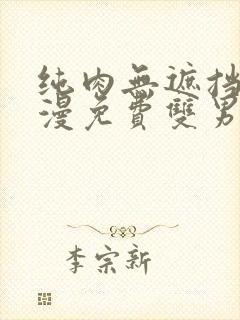 纯肉無遮挡
漫免費雙男
李宗新